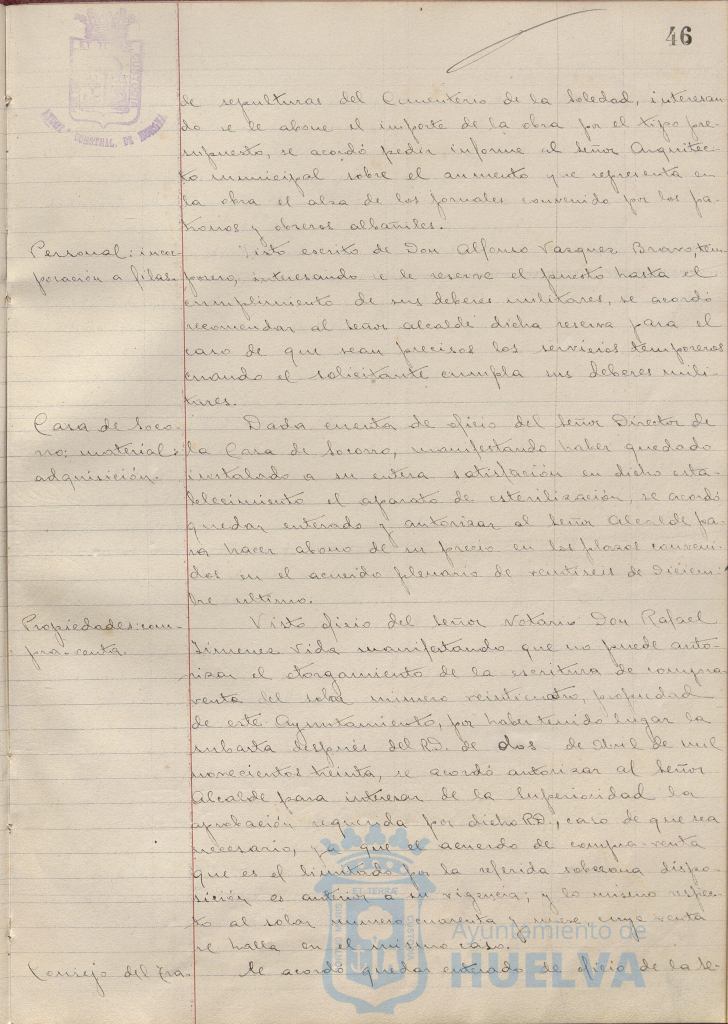 46
de sepulturas del Cementerio de la Soledad, interesan-
do se le abone el importe de la obra por el tipo pre-
supuesto, se acordó pedir informe al Señor Arquitec-
to municipal sobre el aumento que representa en
la obra el alza de los jornales convenido por los pa-
tronos y obreros albañiles.
Personal: incor-
poración a filas.
Visto escrito de Don Alfonso Vazquez Bravo, tem-
porero, interesando se le reserve el puesto hasta el
cumplimiento de sus deberes militares, se acordó
recomendar al Señor Alcalde dicha reserva para el
caso de que sean precisos los servicios temporeros
cuando el solicitante cumpla sus deberes mili-
tares.
Casa de Soco-
rro: material:
adquisición.
Dada cuenta de oficio del Señor Director de
la Casa de Socorro, manifestando haber quedado
instalado a su entera satisfacción en dicho esta-
blecimiento el aparato de esterilización, se acordó
quedar enterado y autorizar al Señor Alcalde pa-
ra hacer abono de su precio en los plazos conveni-
dos en el acuerdo plenario de veintiseis de Diciem-
bre ultimo.
Propiedades: com-
pra-venta.
Visto oficio del Señor Notario Don Rafael
Jimenez Vida manifestando que no puede auto-
rizar el otorgamiento de la escritura de compra-
venta del solar número veinticuatro, propiedad
de este Ayuntamiento, por haber tenido lugar la
subasta después del RD. de dos de Abril de mil
novecientos treinta, se acordó autorizar al Señor
Alcalde para interesar de la Superioridad la
aprobación requerida por dicho RD., caso de que sea
necesario, ya que el acuerdo de compra-venta
que es el limitado por la referida soberana dispo-
sición es anterior a su vigencia; y lo mismo respec-
to al solar número cuarenta y nueve cuya venta
se halla en el mismo caso.
Consejo del Tra.
Se acordó quedar enterado de oficio de la Se-
Ayuntamiento de
HUELVA